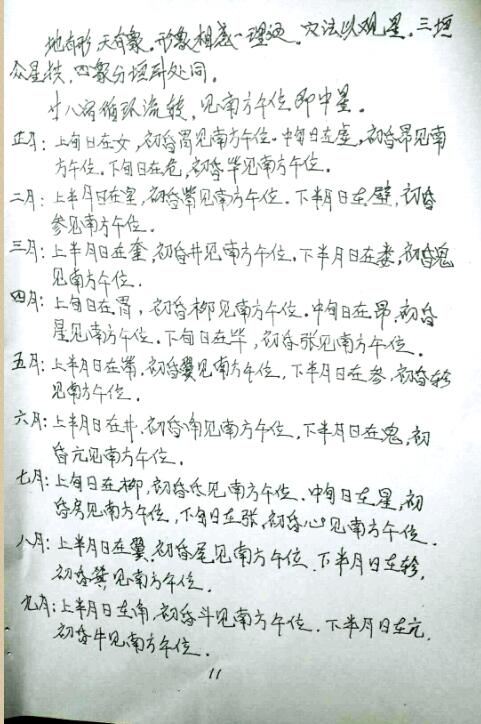 地有形天有象.形象相感一理通.穴法以观星.三垣
众星拱,四象分垣列处同.
廿八宿循环流转,见南方午位即中星.
正月:上旬日在女,初昏胃见南方午位.中旬日在虚,初昏昴见南
方午位.下旬日在危,初昏毕见南方午位.
二月:上半月日在室,初昏觜见南方午位.下半月日在壁,初昏
参见南方午位.
三月:上半月日在奎,初昏井见南方午位,下半月日在娄,初昏鬼
见南方午位.
四月:上旬日在胃,初昏柳见南方午位.中旬日在昴,初昏
星见南方午位.下旬日在毕,初昏张见南方午位.
五月:上半月日在觜.初昏翼见南方午位,下半月日在参,初昏轸
见南方午位.
六月:上半月日在井.初昏角见南方午位,下半月日在鬼,初
昏亢见南方午位.
七月:上旬日在柳,初昏氐见南方午位.中旬日在星,初
昏房见南方午位,下旬日在张,初昏心见南方午位.
八月:上半月日在翼.初昏尾见南方午位.下半月日在轸,
初昏箕见南方午位.
九月:上半月日在角,初昏斗见南方午位.下半月日在亢.
初昏牛见南方午位.
11